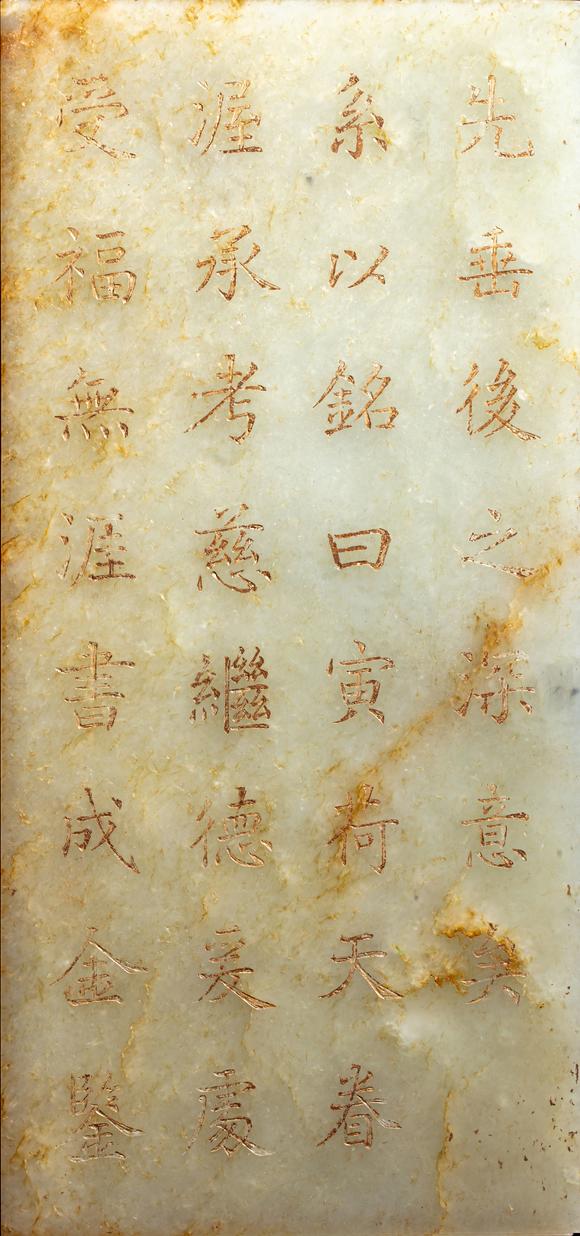 先垂後之深意矣
系以銘曰寅荷天眷
渥承考慈繼德爰處
受福無涯書成金鑒